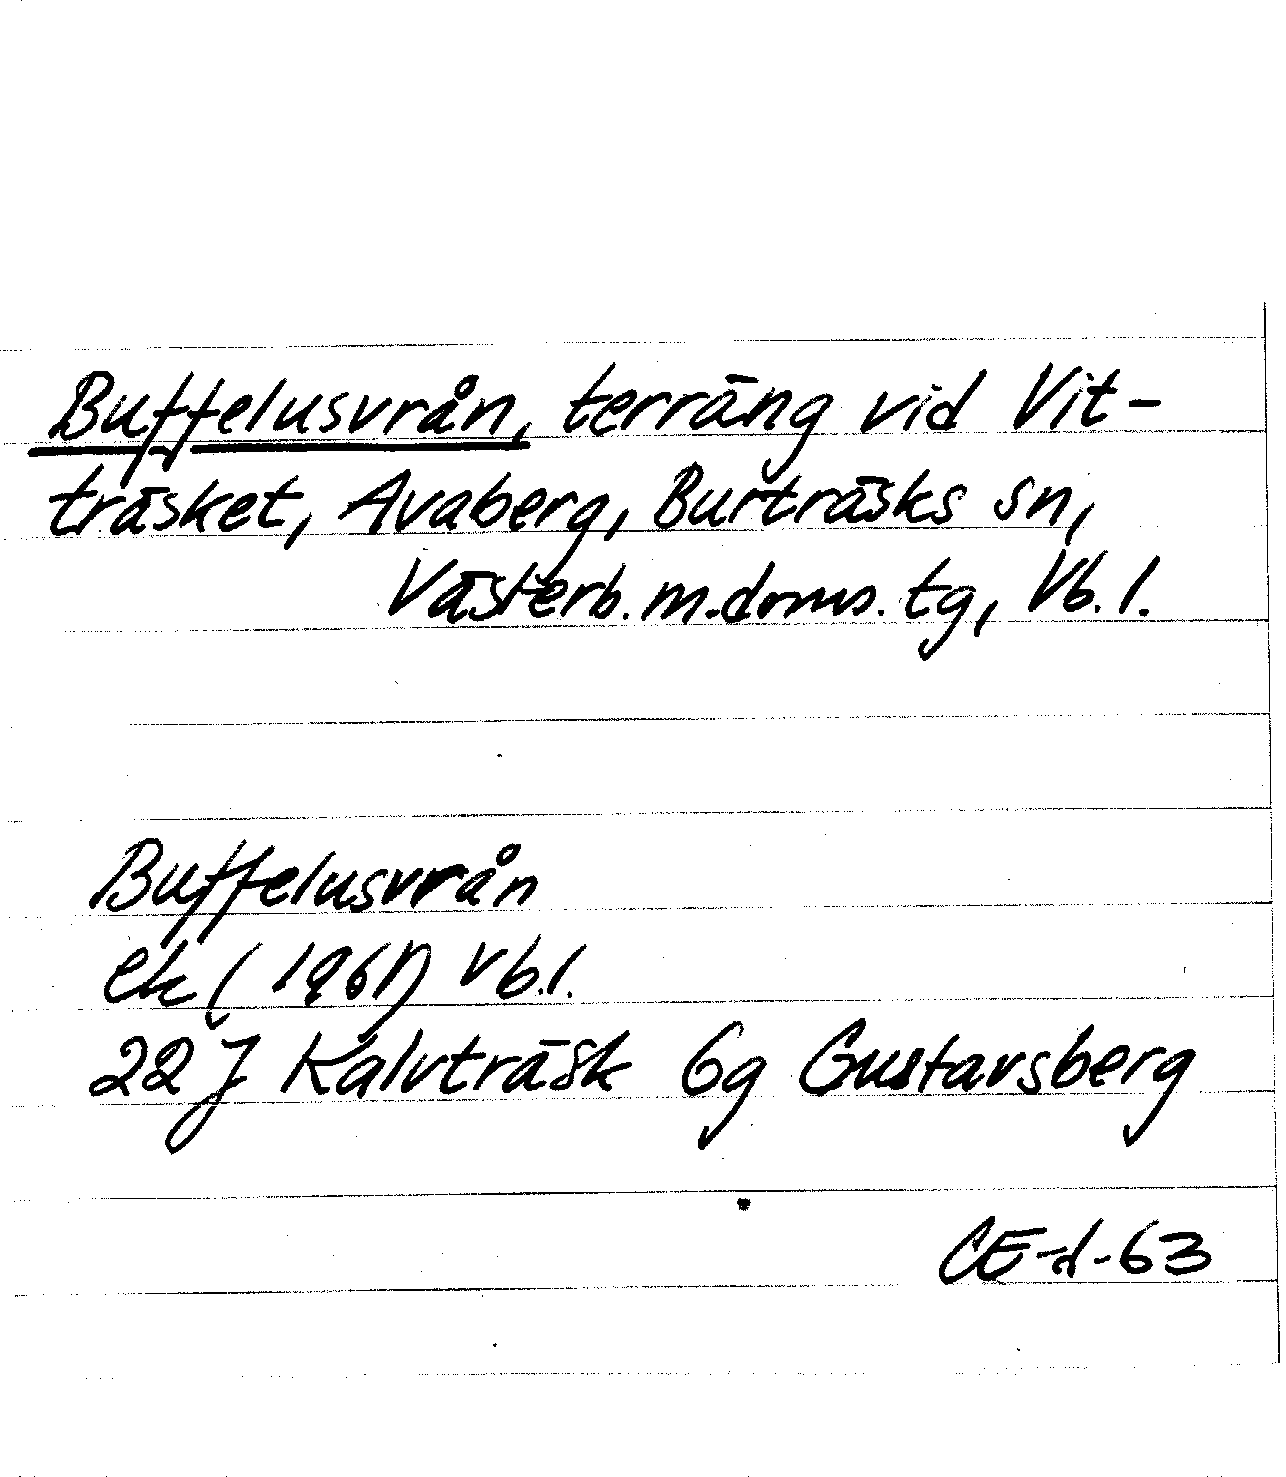 Buffelusvrån, terräng vid Vit-
träsket, Avaberg, Burträsks sn,
Västerb. m. doms. tg, Vb. l.
Buffelusvrån
ek (1961) Vb.l.
22 J Kalvträsk 6g Gustavsberg
CE-d-63